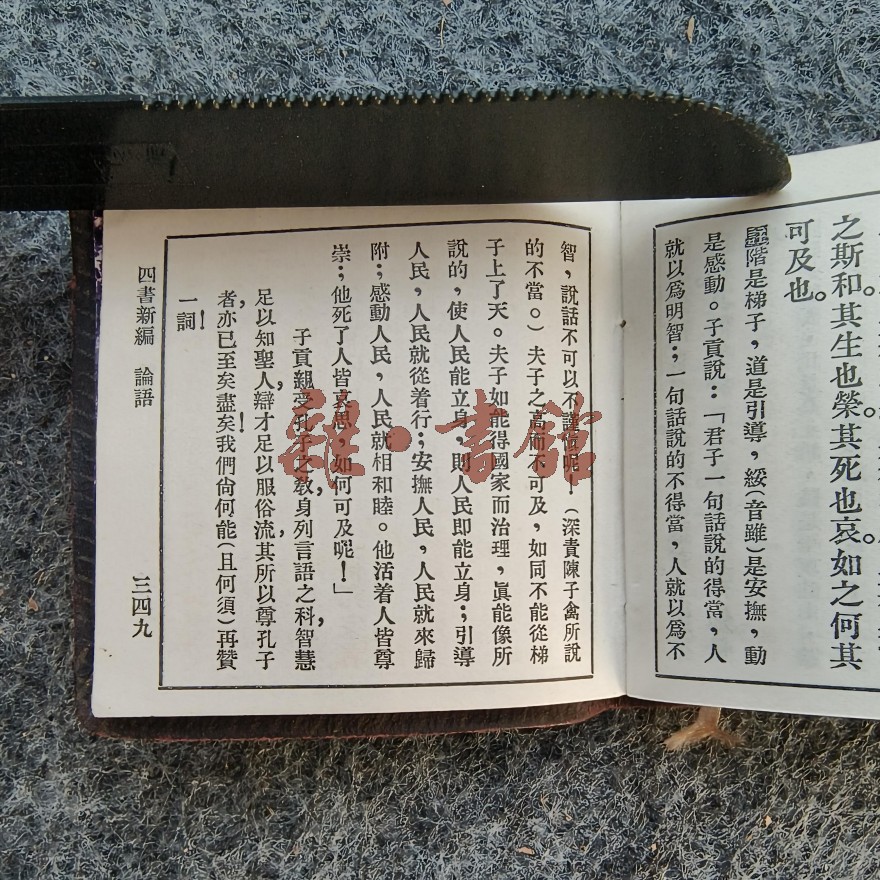 之斯和。其生也榮。其死也哀。如之何其
可及也。
階是梯子，道是引導，綏（音雖）是安撫，動
是感動。子貢說：「君子一句話說的得當，人
就以爲明智；一句話說的不得當，人就以爲不
智，說話不可以不謹慎呢！（深責陳子禽所說
的不當。）夫子之高而不可及，如同不能從梯
子上了天。夫子如能得國家而治理，眞能像所
說的，使人民能立身，則人民即能立身；引導
人民，人民就從着行；安撫人民，人民就來歸
附；感動人民，人民就相和睦。他活着人皆尊
崇；他死了人皆哀思，如何可及呢！」
子貢親受孔子之教，身列言語之科，智慧
足以知聖人，辯才足以服俗流，其所以尊孔子
者，亦已至矣！盡矣！我們尙何能（且何須）再贊
一詞！
四書新編 論語
三四九
雜·書館